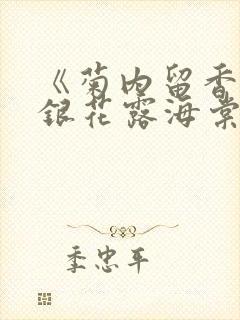 《菊内留香
银花露海棠
季忠平